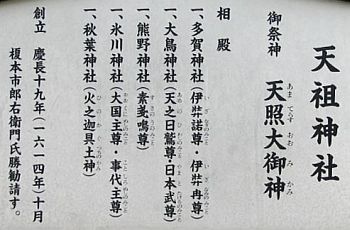 天祖神社
御祭神
天照大御神
あまてらすおおみかみ
相殿
一、多賀神社(伊弉諾尊・伊弉冉尊)
一、大鳥神社(天之日鷲尊・日本武尊)
一、熊野神社(素戔鳴尊)
一、氷川神社(大国主尊・事代主尊)
一、秋葉神社(火之迦具土神)
創立 慶長十九年(一六一四年)十月
榎本市郎右衛門氏勝勧請す。